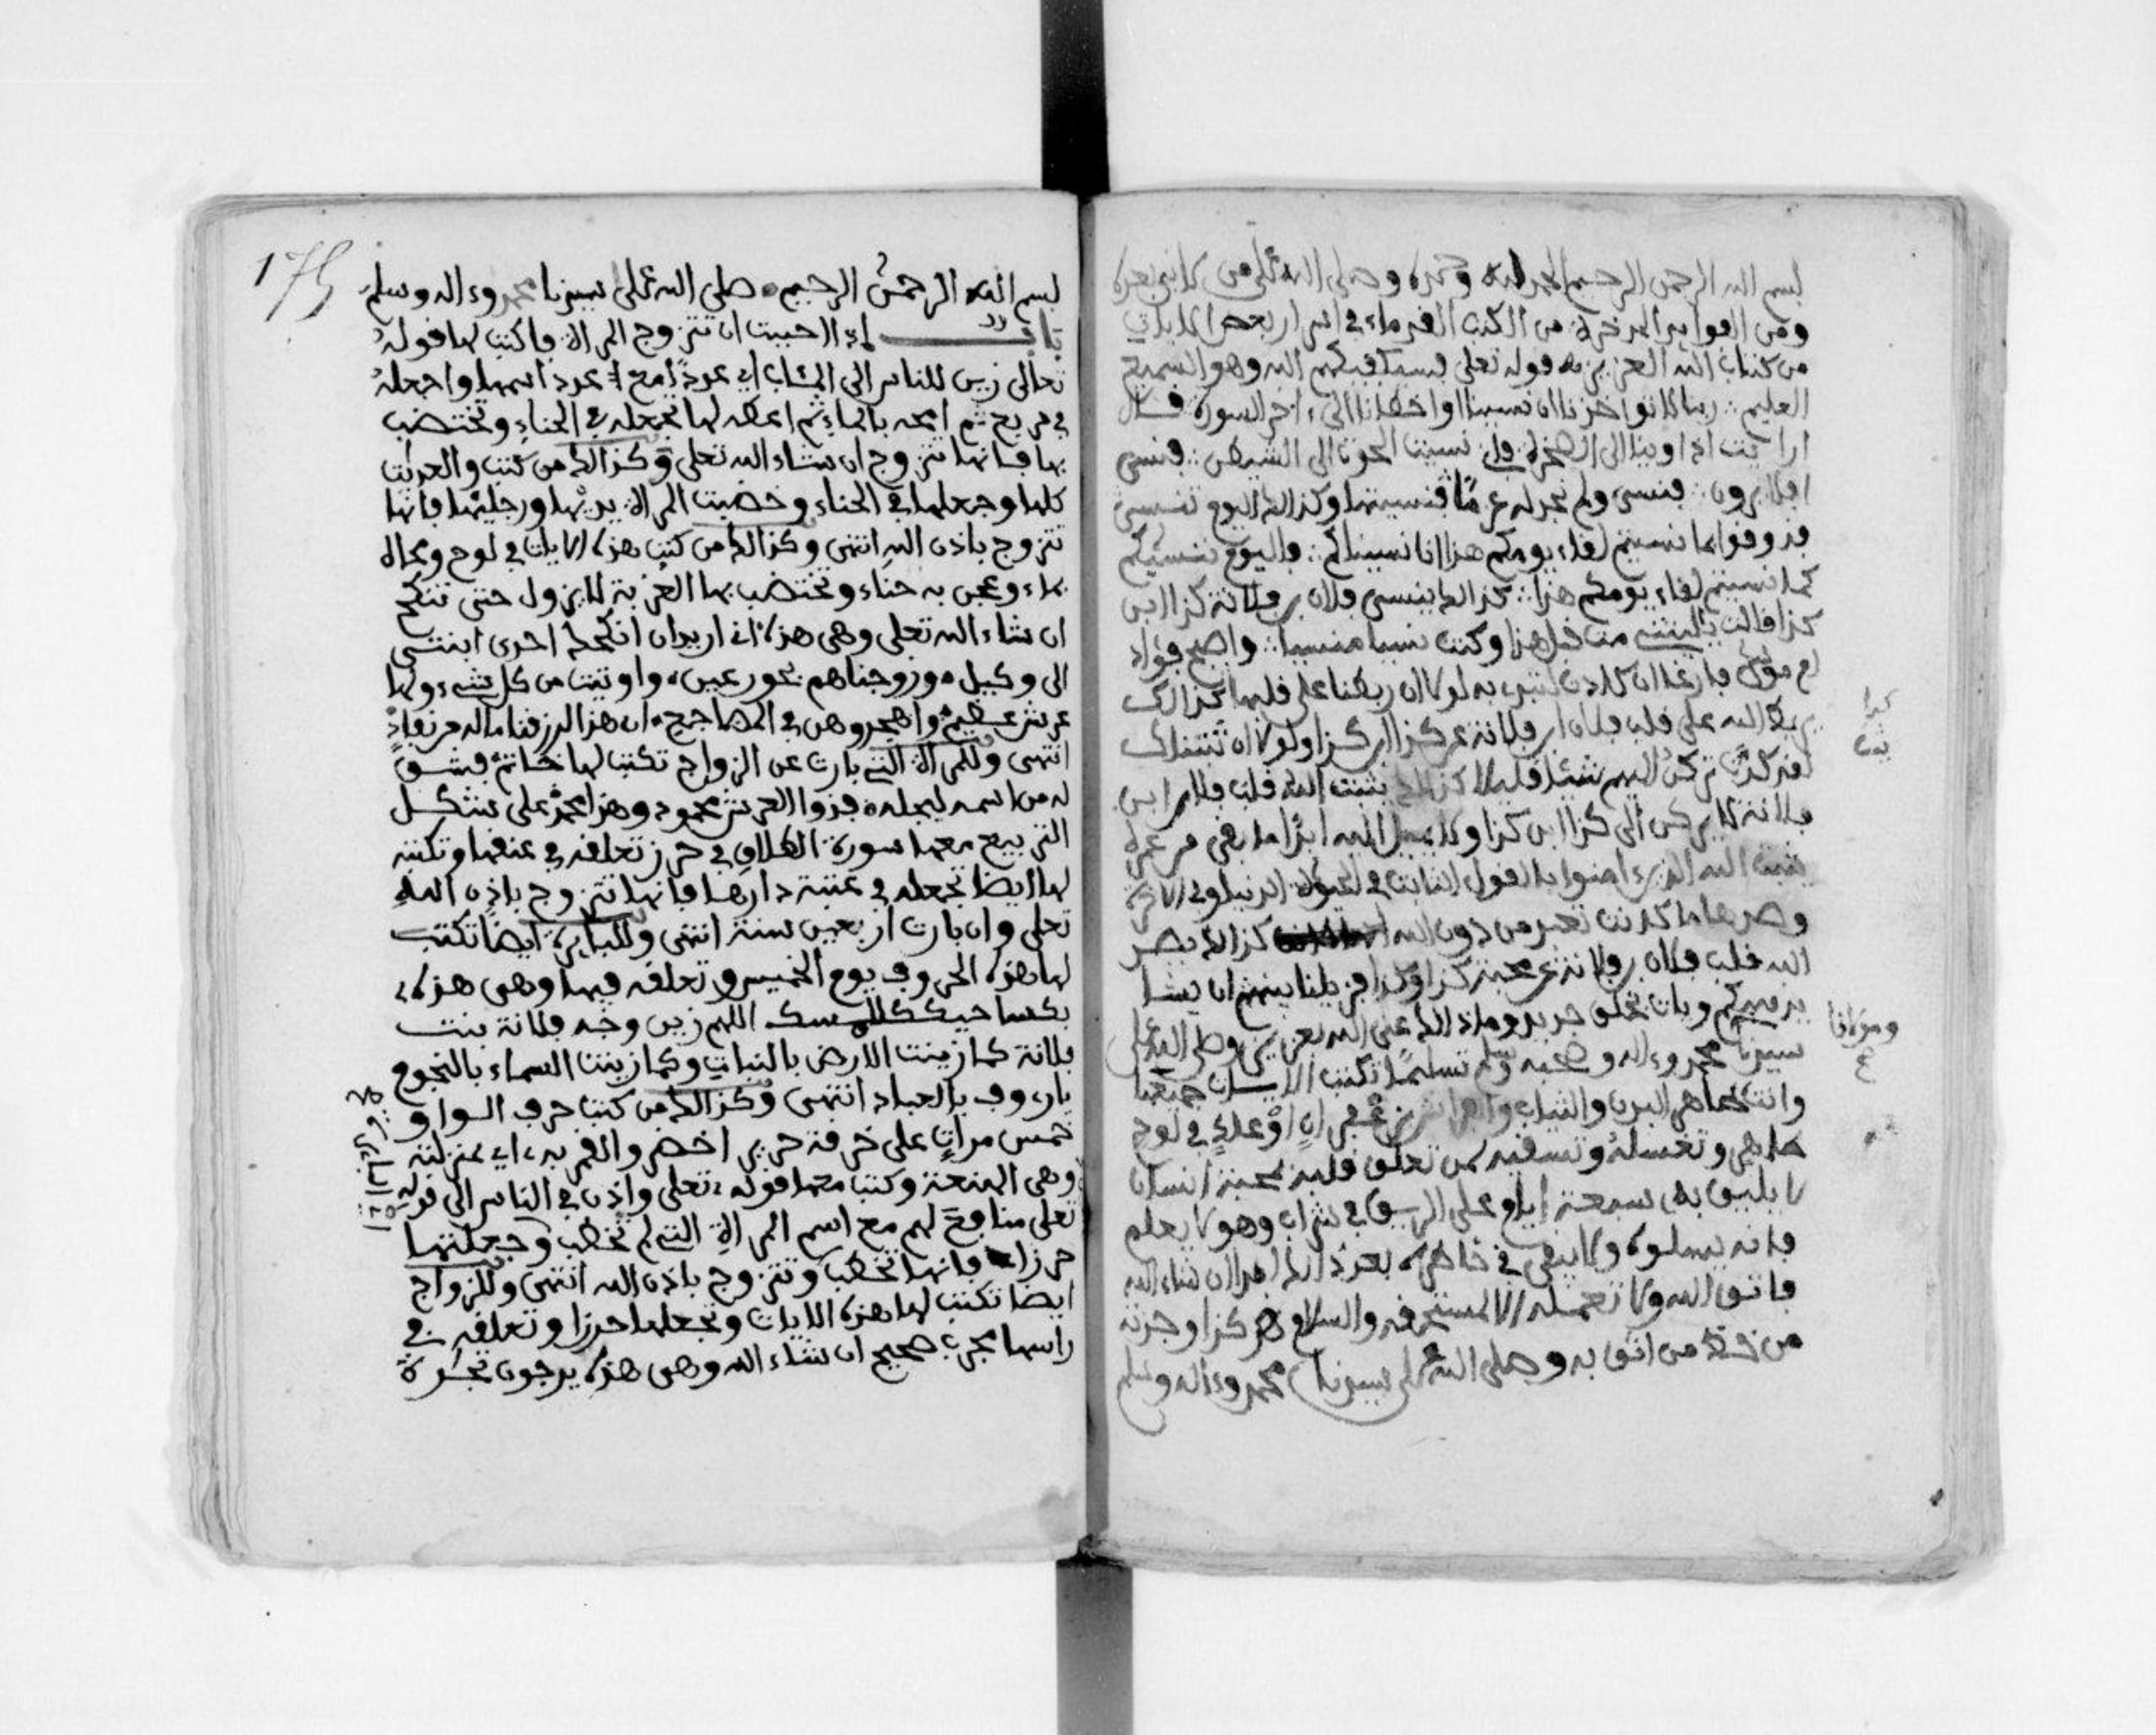 بسم الله الرحمن الرحيم الحمد لله وحده وصلى الله على من لا نبي بعده
ومن الفوائد المدخرة من الكتب القدماء في اسرار بعض الايات
من كتاب الله العزيز قوله تعلى فسيكفيكهم الله وهو السميع
العليم ربنا لا تواخذنا ان نسينا او اخطانا الى ءاخر السورة قال
ارايت اذ اوينا الى الصخرة فاني نسيت الحوت الى الشيطن فنسي
افلا يرون فنسي ولم نجد له عزما فنسيتها وكذالك اليوم تنسى
فذوقوا بما نسيتم لقاء يومكم هذا انا نسيناكم فاليوم ننسيكم
كما نسيتم لقاء يومكم هذا كذالك ينسى فلان بن فلانة كذا ابن
كذا قالت يليتني مت قبل هذا وكنت نسيا منسيا واصبح فؤاد
ام موسى فارغا ان كادت لتبدي به لولا ان ربطنا على قلبها كذالك
يربط الله على قلب فلان ابن فلانة عن كذا ابن كذا ولولا ان ثبتناك
لقد كدت تركن اليهم شيئا قليلا كذالك يثبت الله قلب فلان ابن
فلانة لا يركن الى كذا ابن كذا ولا يميل اليه ابدا ما بقي من عمره
يثبت الله الذين ءامنوا بالقول الثابت في الحيوة الدنيا وفي الاخرة
وصدها ما كانت تعبد من دون الله كذالك يصد
الله قلب فلان بن فلانة عن محبة كذا وكذا فزيلنا بينهم ان يشا
يذهبكم ويات بخلق جديد وما ذالك على الله بعزيز وصلى الله على
سيدنا محمد وءاله وصحبه وسلم تسليما تكتب الايات جميعا
وانت طاهر البدن والثياب في لوح
طاهر وتغسله وتسقيه لمن تعلق قلبه بمحبة انسان
لا يليق به سبعة ايام على الريق في شراب وهو لا يعلم
فانه يسلوه ولا يبقى في خاطره بعد ذالك ابدا ان شاء الله
فاتق الله ولا تعمله الا لمستحقه والسلام هكذا وجدته
من خط من اثق به وصلى الله على سيدنا محمد وءاله وسلم
ومولانا
175
بسم الله الرحمن الرحيم صلى الله على سيدنا محمد وءاله وسلم
باب اذا احببت ان تتزوج المراة فاكتب لها قوله
تعالى زين للناس الى المئاب اي عددا مع عدد اسمها واجعله
في مربع ثم امحه بالماء ثم اعطه لها تجعله في الحناء وتختضب
بها فانها تتزوج ان شاء الله تعلى وكذالك من كتب والعديت
كلها وجعلها في الحناء وخضبت المراة يديها ورجليها فانها
تتزوج باذن الله انتهى وكذالك من كتب هذه الايات في لوح ومحاه
بماء وعجن به حناء وتختضب بها العزبة لا يزول حتى تنكح
ان شاء الله تعلى وهي هذه اني اريد ان انكحك احدى ابنتي
الى وكيل وزوجناهم بحور عين واوتيت من كل شيء ولها
عرش عظيم واهجروهن في المضاجع ان هذا لرزقنا ماله من نفاد
انتهى وللمراة التي بارت عن الزواج تكتب لها خاتم فشق
له من اسمه ليجله فذوا العرش محمود وهذا محمد على شكل
التربيع معها سورة الطلاق في حرز تعلقه في عنقها وتكتبه
لها ايضا تجعله في عتبة دارها فانها تتزوج باذن الله
تعلى وان بارت اربعين سنة انتهى وللبايرة ايضا تكتب
لها هذه الحروف يوم الخميس وتعلقه فيها وهي هذه
اللهم زين وجه فلانة بنت
فلانة كما زينت الارض بالنبات وكما زينت السماء بالنجوم
يا رءوف بالعباد انتهى وكذالك من كتب حرف الواو
خمس مرات على خرقة حرير اخضر والقمر به اي بمنزلته
وهي الهنعة وكتب معها قوله تعلى واذن في الناس الى قوله
تعلى منافع لهم مع اسم المراة التي لم تخطب وجعلتها
حرزا فانها تخطب وتتزوج باذن الله انتهى وللزواج
ايضا تكتب لها هذه الايات وتجعلها حرزا وتعلقه في
راسها مجرب صحيح ان شاء الله وهي هذه يرجون تجارة